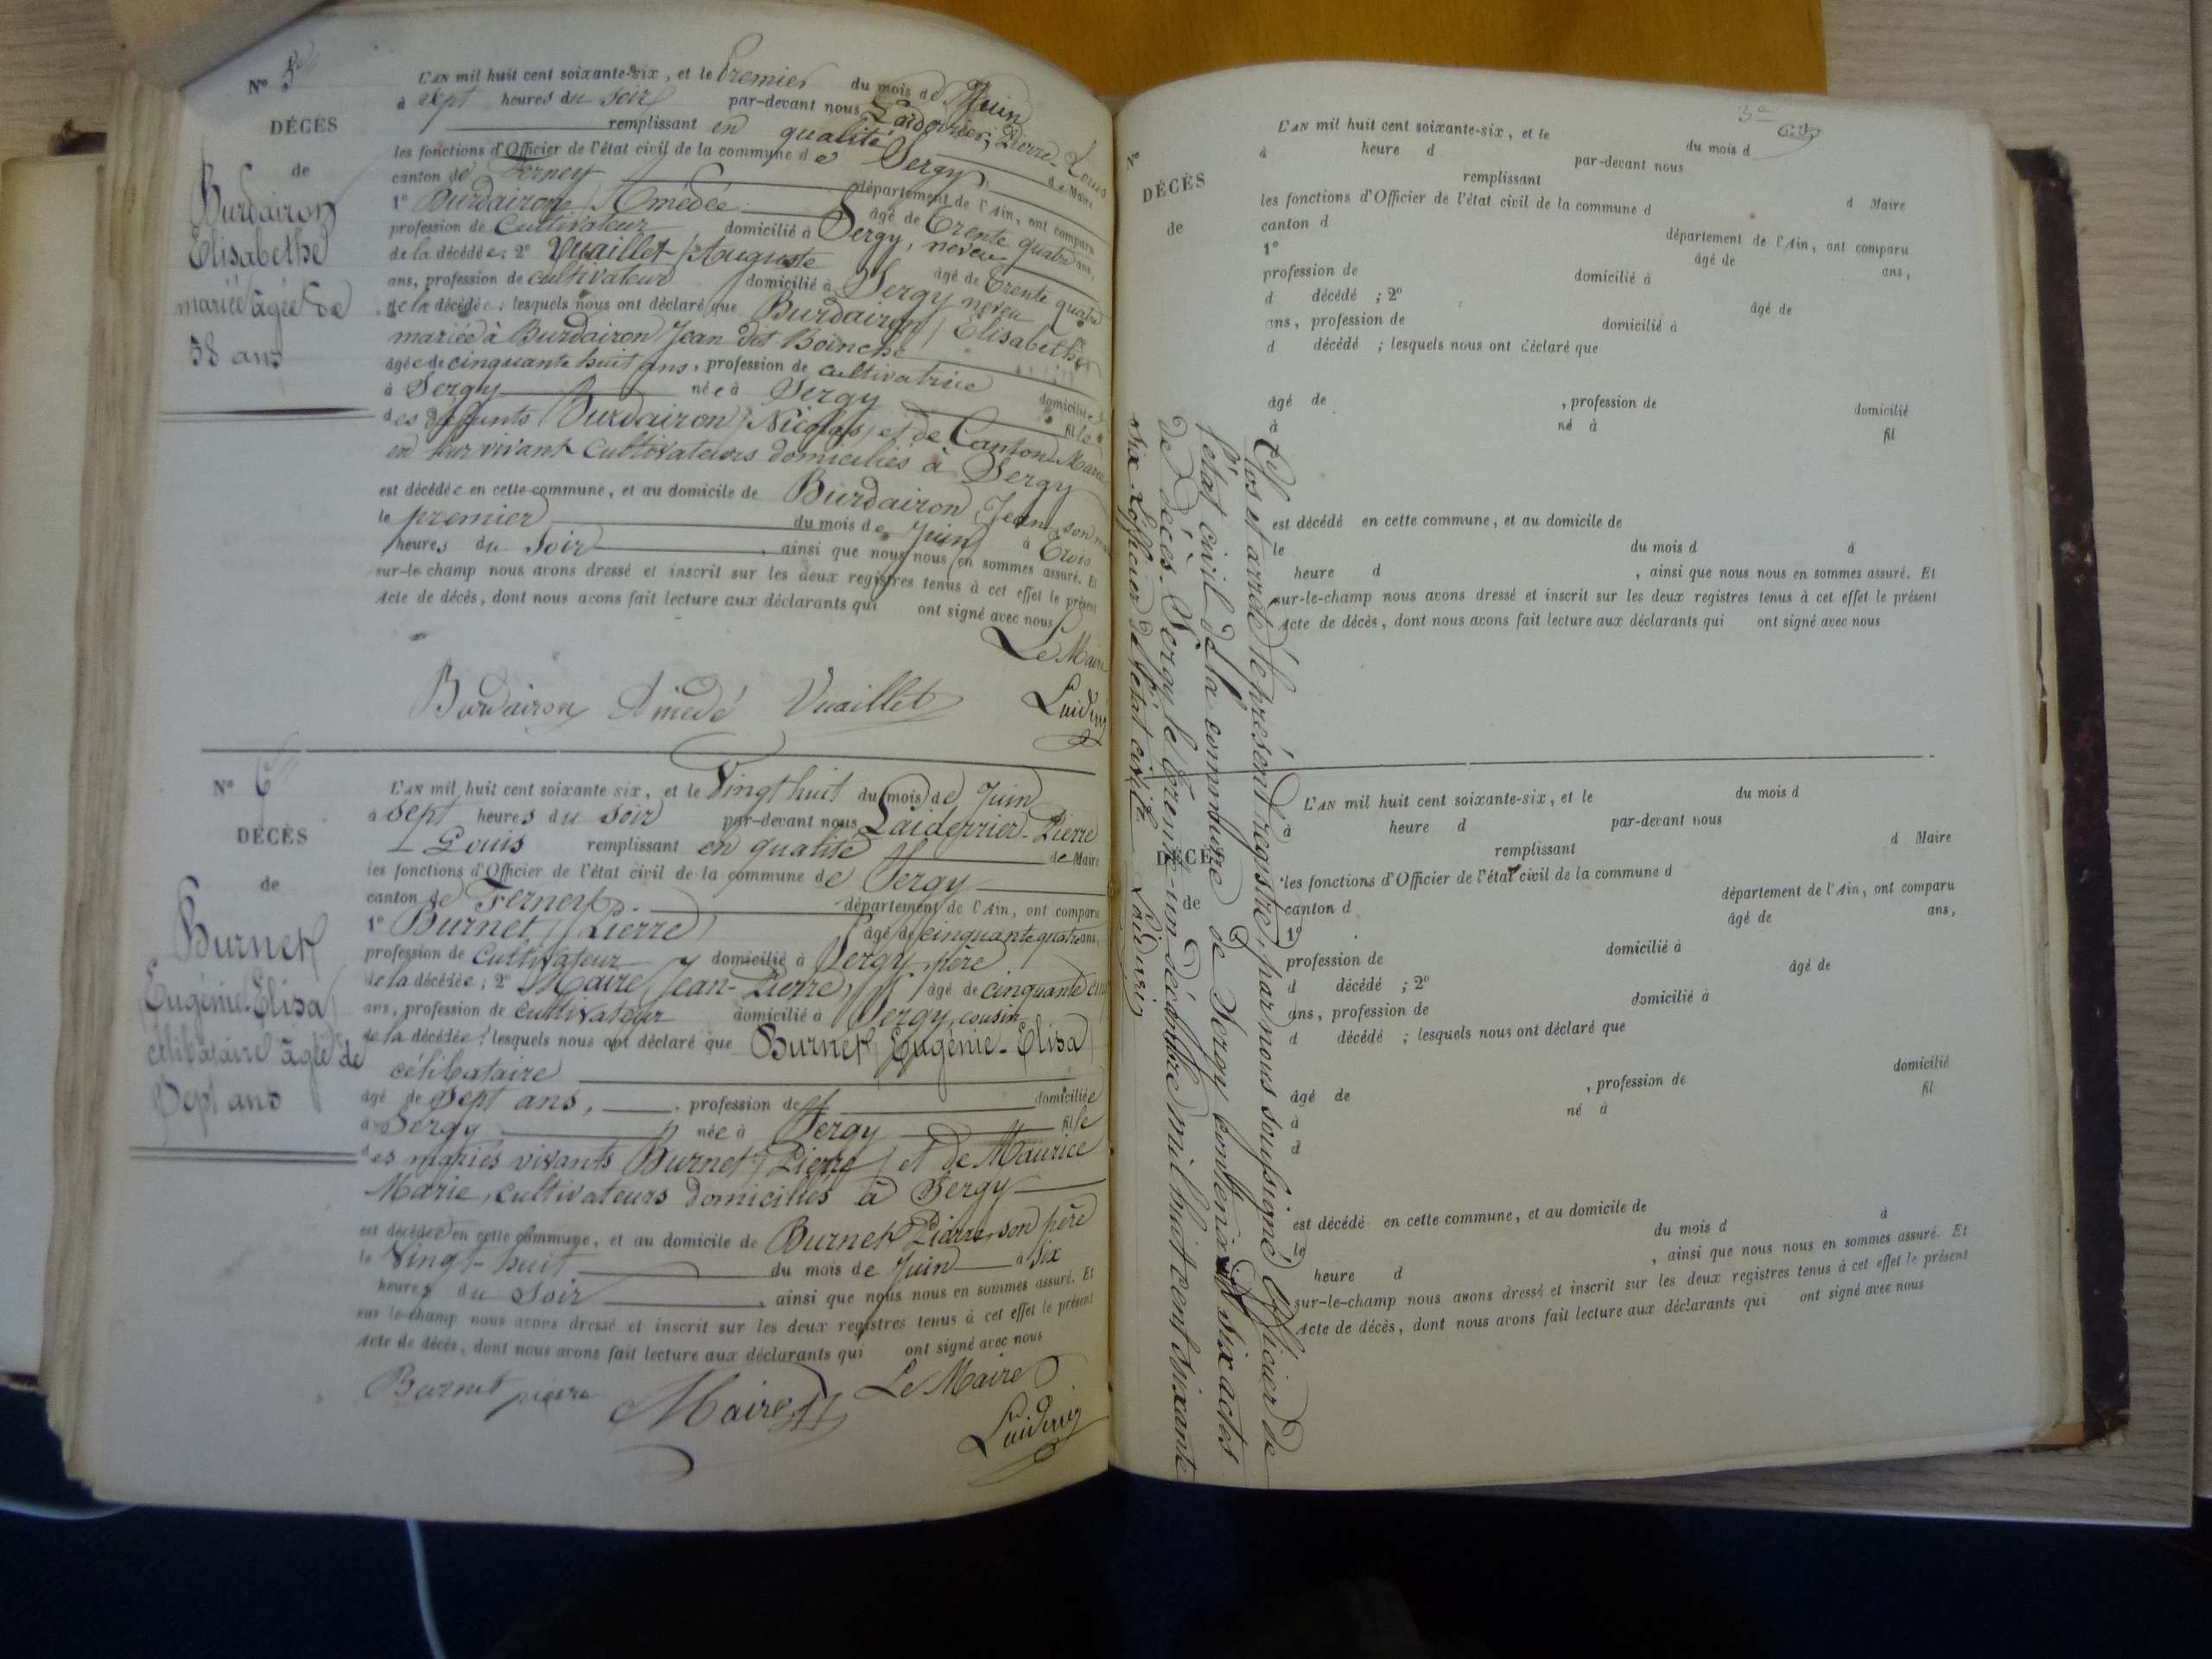 N° 5
DÉCÈS
de
Burdairon
Elisabethe
mariée âgée de
58 ans
L'AN mil huit cent soixante-six, et le Premier du mois de Juin
à sept heures du soir par-devant nous Laiderrier, Pierre-Louis
remplissant en qualité de Maire
les fonctions d'Officier de l'état civil de la commune de Sergy
canton de Ferney département de l'Ain, ont comparu
1° Burdairon Amédée âgé de Trente quatre ans,
profession de Cultivateur domicilié à Sergy, neveu
de la décédée; 2° Vuaillet Auguste âgé de Trente quatre
ans, profession de cultivateur domicilié à Sergy neveu
de la décédée; lesquels nous ont déclaré que Burdairon Elisabethe
mariée à Burdairon Jean dit Boinche
âgée de cinquante huit ans, profession de cultivatrice domiciliée
à Sergy née à Sergy fille
des défunts Burdairon Nicolas et de Canton Marie
en leur vivant Cultivateurs domiciliés à Sergy
est décédée en cette commune, et au domicile de Burdairon Jean son
le premier du mois de Juin à Trois
heures du Soir, ainsi que nous nous en sommes assuré. Et
sur-le-champ nous avons dressé et inscrit sur les deux registres tenus à cet effet le présent
Acte de décès, dont nous avons fait lecture aux déclarants qui ont signé avec nous
Le Maire
Burdairon Amédé Vuaillet
N° 6
DÉCÈS
de
Burnet
Eugénie-Elisa
célibataire âgée de
Sept ans
L'AN mil huit cent soixante six, et le Vingt huit du mois de Juin
à sept heures du soir par-devant nous Laiderrier-Pierre
Louis remplissant en qualité de Maire
les fonctions d'Officier de l'état civil de la commune de Sergy
canton de Ferney département de l'Ain, ont comparu
1° Burnet Pierre âgé de cinquante quatre ans,
profession de cultivateur domicilié à Sergy, père
de la décédée; 2° Maire Jean-Pierre, âgé de cinquante cinq
ans, profession de cultivateur domicilié à Sergy, cousin
de la décédée; lesquels nous ont déclaré que Burnet Eugénie-Elisa
célibataire
âgé de sept ans, profession de domiciliée
à Sergy née à Sergy fille
des mariés vivants Burnet Pierre et de Maurice
Marie, cultivateurs domiciliés à Sergy
est décédée en cette commune, et au domicile de Burnet Pierre, son père
le Vingt-huit du mois de Juin à six
heures du Soir, ainsi que nous nous en sommes assuré. Et
sur-le-champ nous avons dressé et inscrit sur les deux registres tenus à cet effet le présent
Acte de décès, dont nous avons fait lecture aux déclarants qui ont signé avec nous
Burnet pierre Maire Le Maire
DÉCÈS
de
L'AN mil huit cent soixante-six, et le du mois d
à heure d par-devant nous
remplissant d Maire
les fonctions d'Officier de l'état civil de la commune d
canton d département de l'Ain, ont comparu
1° âgé de ans,
profession de domicilié à
d décédé ; 2° âgé de
ans, profession de domicilié à
d décédé ; lesquels nous ont déclaré que
âgé de , profession de domicilié
à né à fil
est décédé en cette commune, et au domicile de
le du mois d à
heure d , ainsi que nous nous en sommes assuré. Et
sur-le-champ nous avons dressé et inscrit sur les deux registres tenus à cet effet le présent
Acte de décès, dont nous avons fait lecture aux déclarants qui ont signé avec nous
Clos et arrêté le présent registre, par nous soussigné Officier de
l'état civil de la commune de Sergy contenant six actes
de décès. Sergy le trente-un décembre mil huit cent soixante
six. L'officier de l'état civil
DÉCÈS
de
L'AN mil huit cent soixante-six, et le du mois d
à heure d par-devant nous
remplissant d Maire
les fonctions d'Officier de l'état civil de la commune d
canton d département de l'Ain, ont comparu
1° âgé de ans,
profession de domicilié à
d décédé ; 2° âgé de
ans, profession de domicilié à
d décédé ; lesquels nous ont déclaré que
âgé de , profession de domicilié
à né à fil
d
est décédé en cette commune, et au domicile de
le du mois d à
heure d , ainsi que nous nous en sommes assuré. Et
sur-le-champ nous avons dressé et inscrit sur les deux registres tenus à cet effet le présent
Acte de décès, dont nous avons fait lecture aux déclarants qui ont signé avec nous